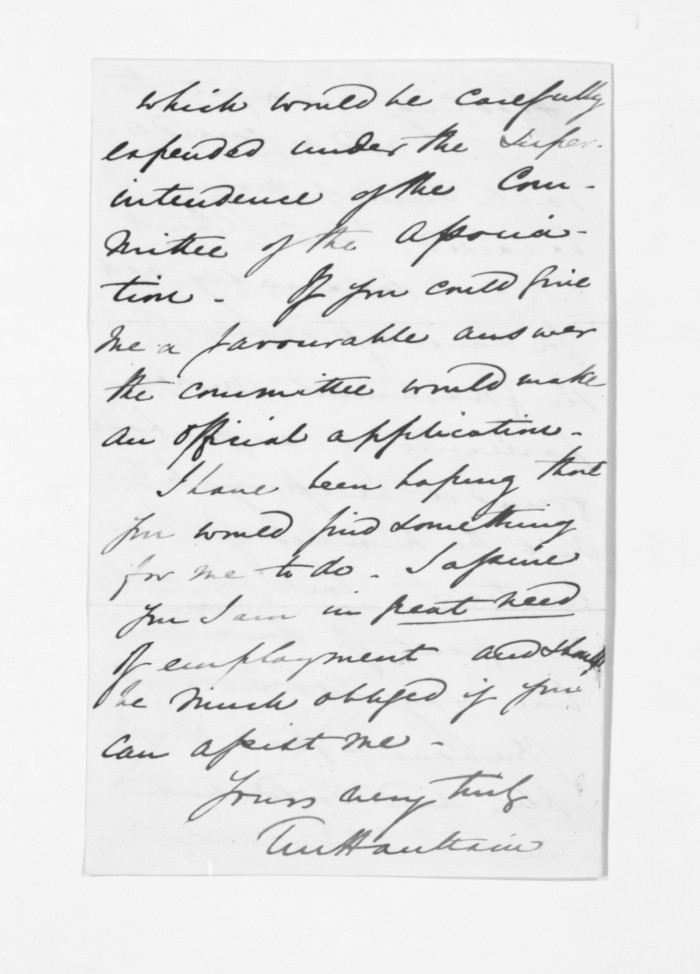 which would be carefully
expended under the Super-
intendence of the Com-
mittee of the Associa-
tion - If you could give
me a favourable answer
the committee would make
an official application -
I have been hoping that
you would find something
for me to do - I assure
you I am in great need
of employment and should
be much obliged if you
can assist me -
Yours very truly
TM Haultain